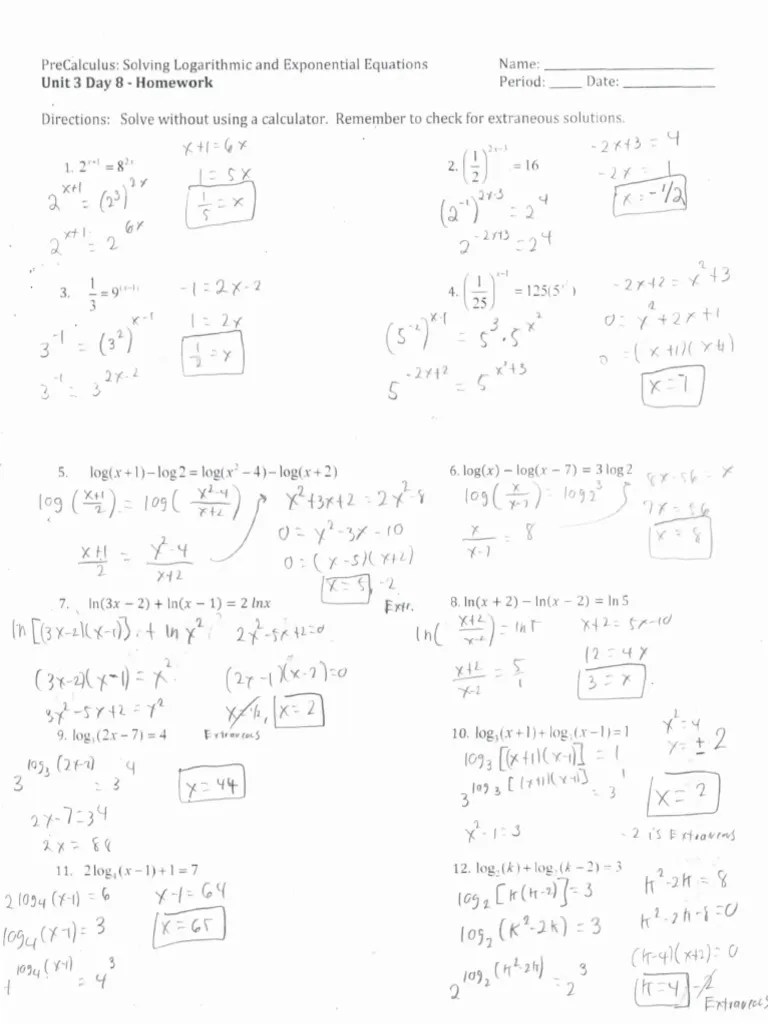 PreCalculus: Solving Logarithmic and Exponential Equations
Name: ____________
Unit 3 Day 8 - Homework
Period: ____ Date: ____________
Directions: Solve without using a calculator. Remember to check for extraneous solutions.
1. 2^(x+1) = 8^(2x)
x+1 = 6x
1 = 5x
1/5 = x
2^(x+1) = (2^3)^(2x)
2^(x+1) = 2^(6x)
2. (1/2)^(2x-3) = 16
-2x+3 = 4
-2x = 1
x = -1/2
(2^-1)^(2x-3) = 2^4
2^(-2x+3) = 2^4
3. 1/3 = 9^(x-1)
-1 = 2x-2
1 = 2x
1/2 = x
3^-1 = (3^2)^(x-1)
3^-1 = 3^(2x-2)
4. (1/25)^(x-1) = 125(5^x²)
-2x+2 = x^2+3
0 = x^2+2x+1
0 = (x+1)(x+1)
(5^-2)^(x-1) = 5^3 · 5^x²
5^(-2x+2) = 5^(x²+3)
5. log(x+1)-log2 = log(x²-4)-log(x+2)
log((x+1)/2) = log((x²-4)/(x+2))
(x+1)/2 = (x²-4)/(x+2)
x²+3x+2 = 2x²-8
0 = x²-3x-10
0 = (x-5)(x+2)
x = 5, -2
Extr.
6. log(x) - log(x-7) = 3log2
log(x/(x-7)) = log2^3
x/(x-7) = 8
8x-56 = x
7x = 56
x = 8
7. ln(3x-2) + ln(x-1) = 2 lnx
ln[(3x-2)(x-1)] + ln x²
(3x-2)(x-1) = x²
3x²-5x+2 = x²
2x²-5x+2=0
(2x-1)(x-2)=0
x=1/2, x=2
Extraneous
8. ln(x+2) - ln(x-2) = ln5
ln((x+2)/(x-2)) = ln5
(x+2)/(x-2) = 5/1
x+2 = 5x-10
12 = 4x
3 = x
9. log₃(2x-7) = 4
3^(log₃(2x-7)) = 3^4
2x-7=3^4
2x = 88
x = 44
10. log₃(x+1)+log₃(x-1)=1
log₃[(x+1)(x-1)] = 1
3^(log₃[(x+1)(x-1)]) = 3^1
x²-1=3
x²=4
x=±2
x=2
-2 is Extraneous
11. 2log₄(x-1)+1=7
2log₄(x-1) = 6
log₄(x-1) = 3
4^(log₄(x-1)) = 4^3
x-1=64
x=65
12. log₂(k)+log₂(k-2)=3
log₂[k(k-2)]=3
log₂(k²-2k) = 3
2^(log₂(k²-2k)) = 2^3
k²-2k = 8
k²-2k-8=0
(k-4)(k+2)=0
k=4, -2
Extraneous